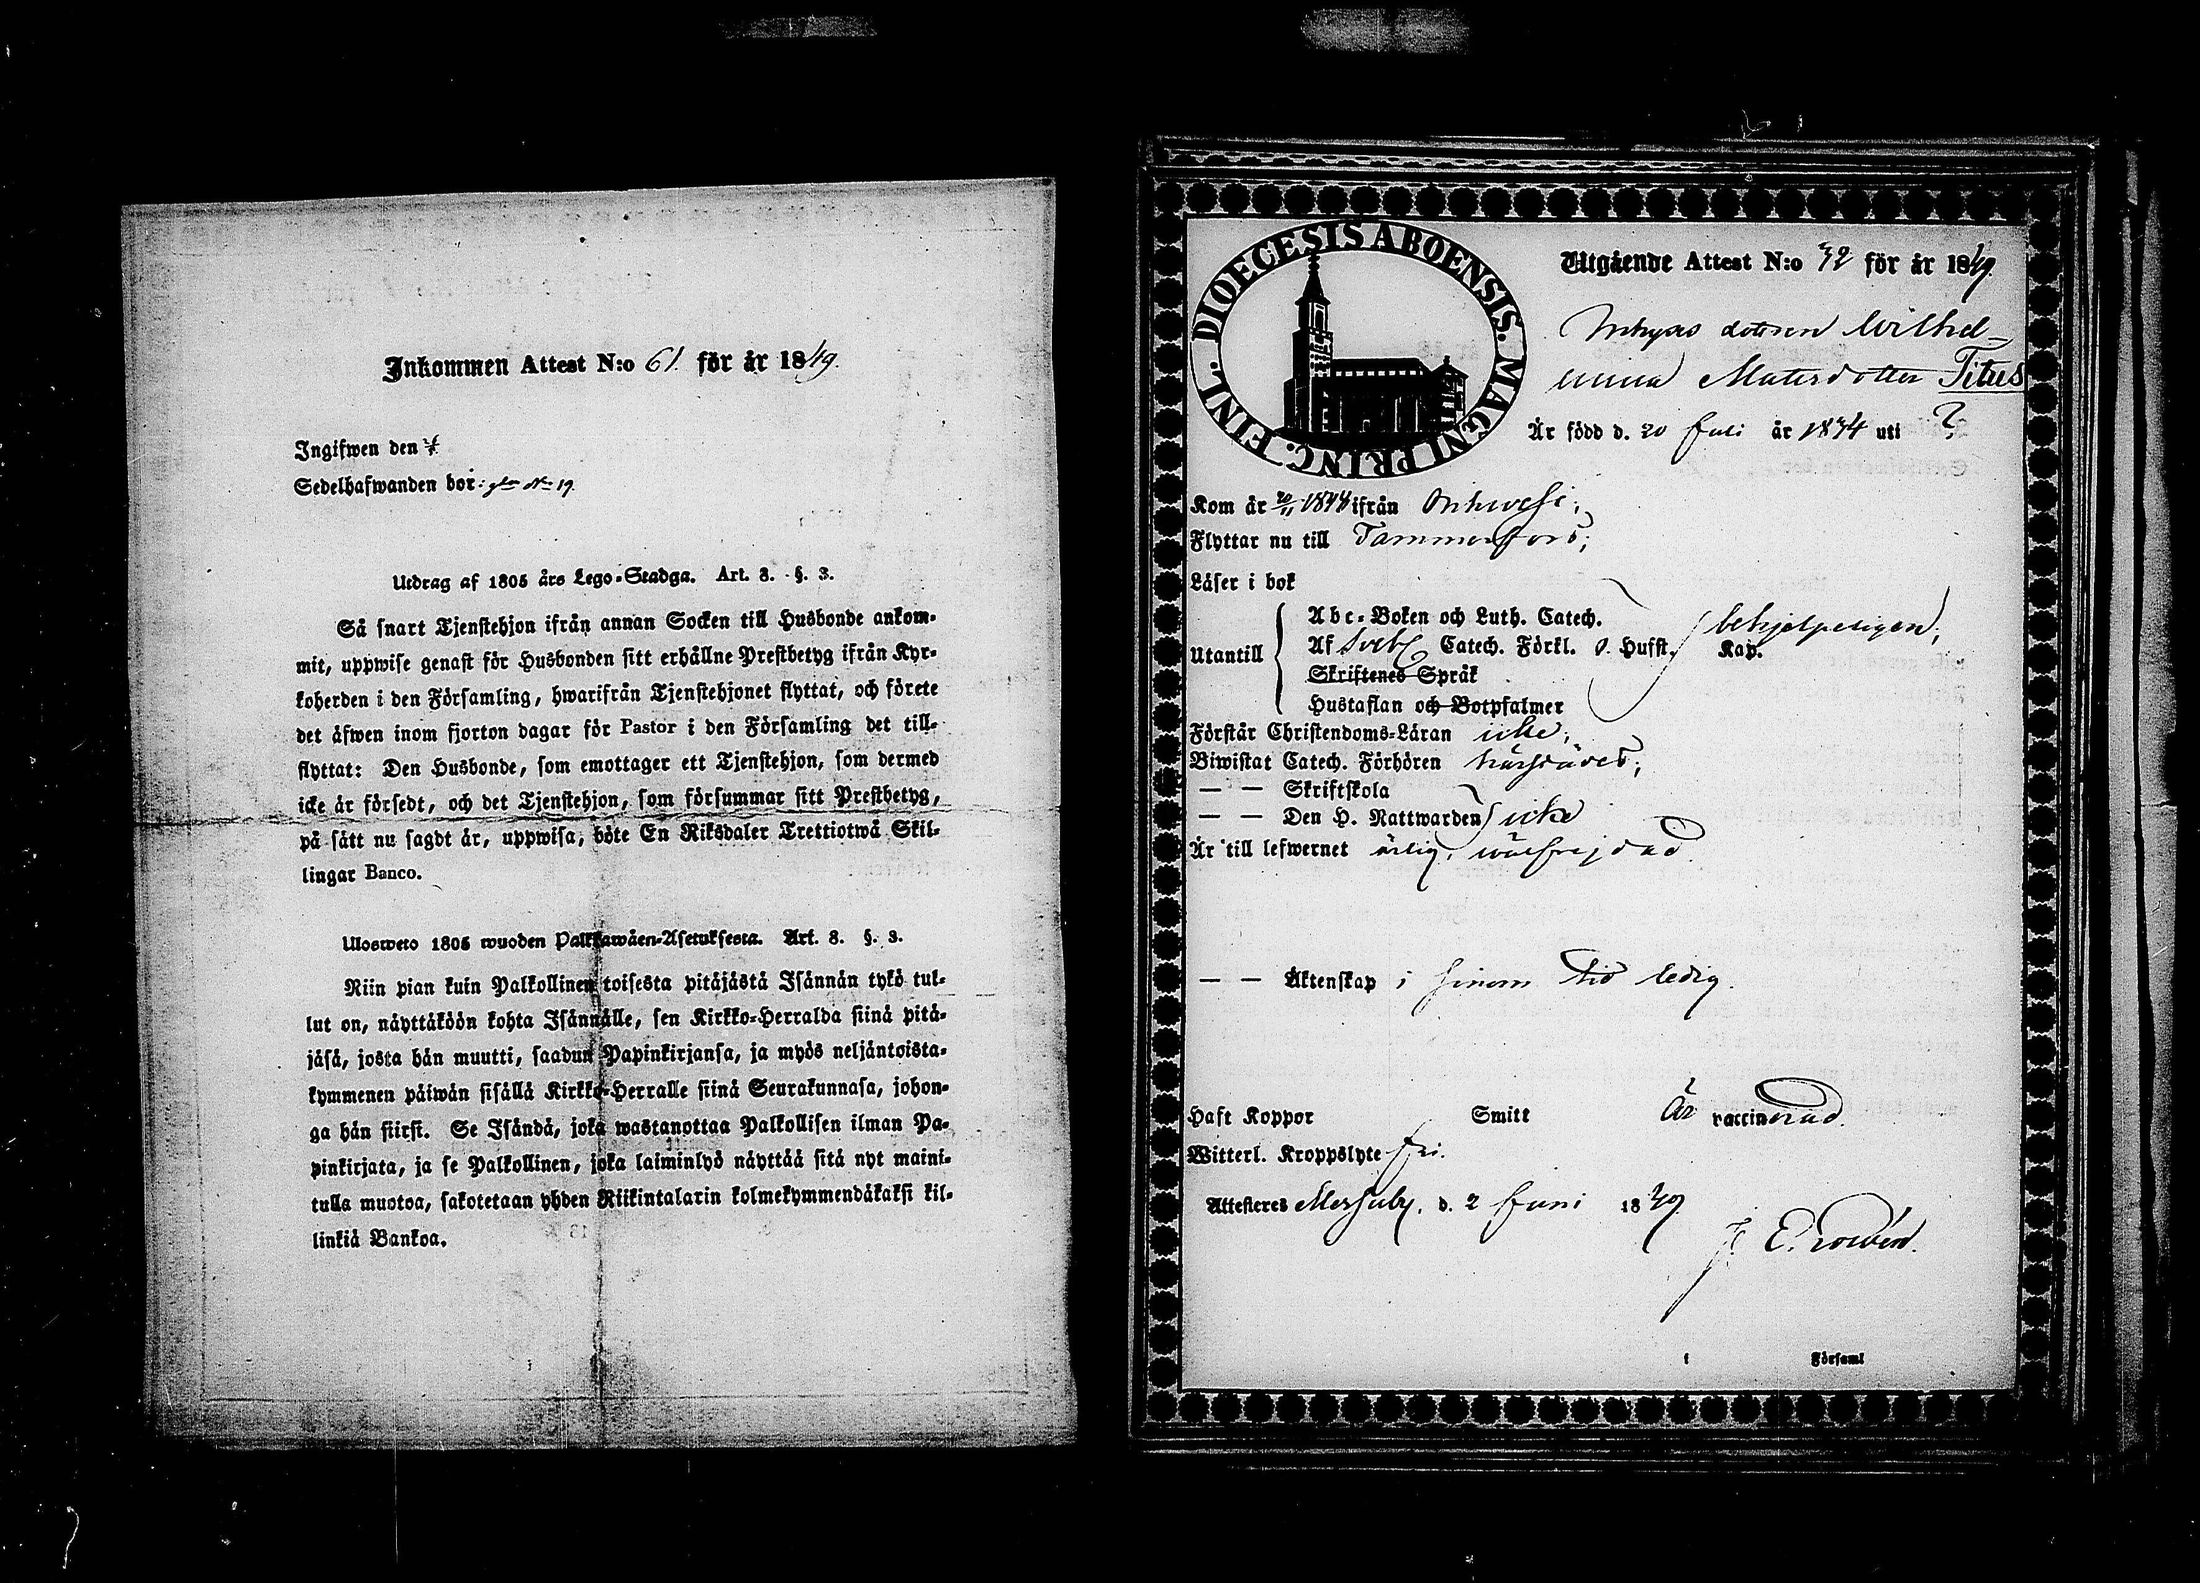 Inkommen Attest N:o 61. för år 1849.
Ingifwen den
Sedelhafwanden bor: N:o 19.
Utdrag af 1805 års Lego-Stadga. Art. 8. §. 3.
Så snart Tjenstehjon ifrån annan Socken till Husbonde ankom-
mit, uppwise genast för Husbonden sitt erhållne Prestbetyg ifrån Kyr-
koherden i den Församling, hwarifrån Tjenstehjonet flyttat, och förete
det äfwen inom fjorton dagar för Pastor i den Församling det till-
flyttat: Den Husbonde, som emottager ett Tjenstehjon, som dermed
icke är försedt, och det Tjenstehjon, som försummar sitt Prestbetyg,
på sätt nu sagdt är, uppwisa, böte En Riksdaler Trettiotwå Skil-
lingar Banco.
Ulosweto 1805 wuoden Palkkawäen-Asetuksesta. Art. 8. §. 3.
Niin pian kuin Palkollinen toisesta pitäjästä Isännän tykö tul-
lut on, näyttäköön kohta Isännälle, sen Kirkko-Herralda siinä pitä-
jäsä, josta hän muutti, saadun Papinkirjansa, ja myös neljäntoista-
kymmenen päiwän sisällä Kirkko-Herralle siinä Seurakunnasa, johon-
ga hän siirsi. Se Isändä, joka wastanottaa Palkollisen ilman Pa-
pinkirjata, ja se Palkollinen, joka laiminlyö näyttää sitä nyt maini-
tulla muotoa, sakotetaan yhden Riikintalarin kolmekymmendäkaksi kil-
linkiä Bankoa.
DIOECESIS ABOENSIS. MAGNI PRINC. FINL.
Utgående Attest N:o 32 för år 1849.
Inhyses dottren Wilhel-
mina Matsdotter Titus
Är född d. 20 Juli år 1834 uti ?
Kom år 20/11 1848 ifrån Orihwesi;
Flyttar nu till Tammerfors;
Läser i bok
Abc-Boken och Luth. Catech.
Utantill Af Sveb. Catech. Förkl. o. Hufst. Kap. behjelpeligen;
Skriftenes Språk
Hustaflan och Botpsalmer
Förstår Christendoms-Läran icke;
Biwistat Catech. Förhören härstädes;
— — Skriftskola
— — Den H. Nattwarden icke
Är till lefwernet ärlig, wälfrejdad.
— — Äktenskap i sinom tid ledig.
Haft Koppor Smitt Är vaccinerad.
Witterl. Kroppslyte fri.
Attesteres Messuby, d. 2 Juni 1849
J. E.
i Församl